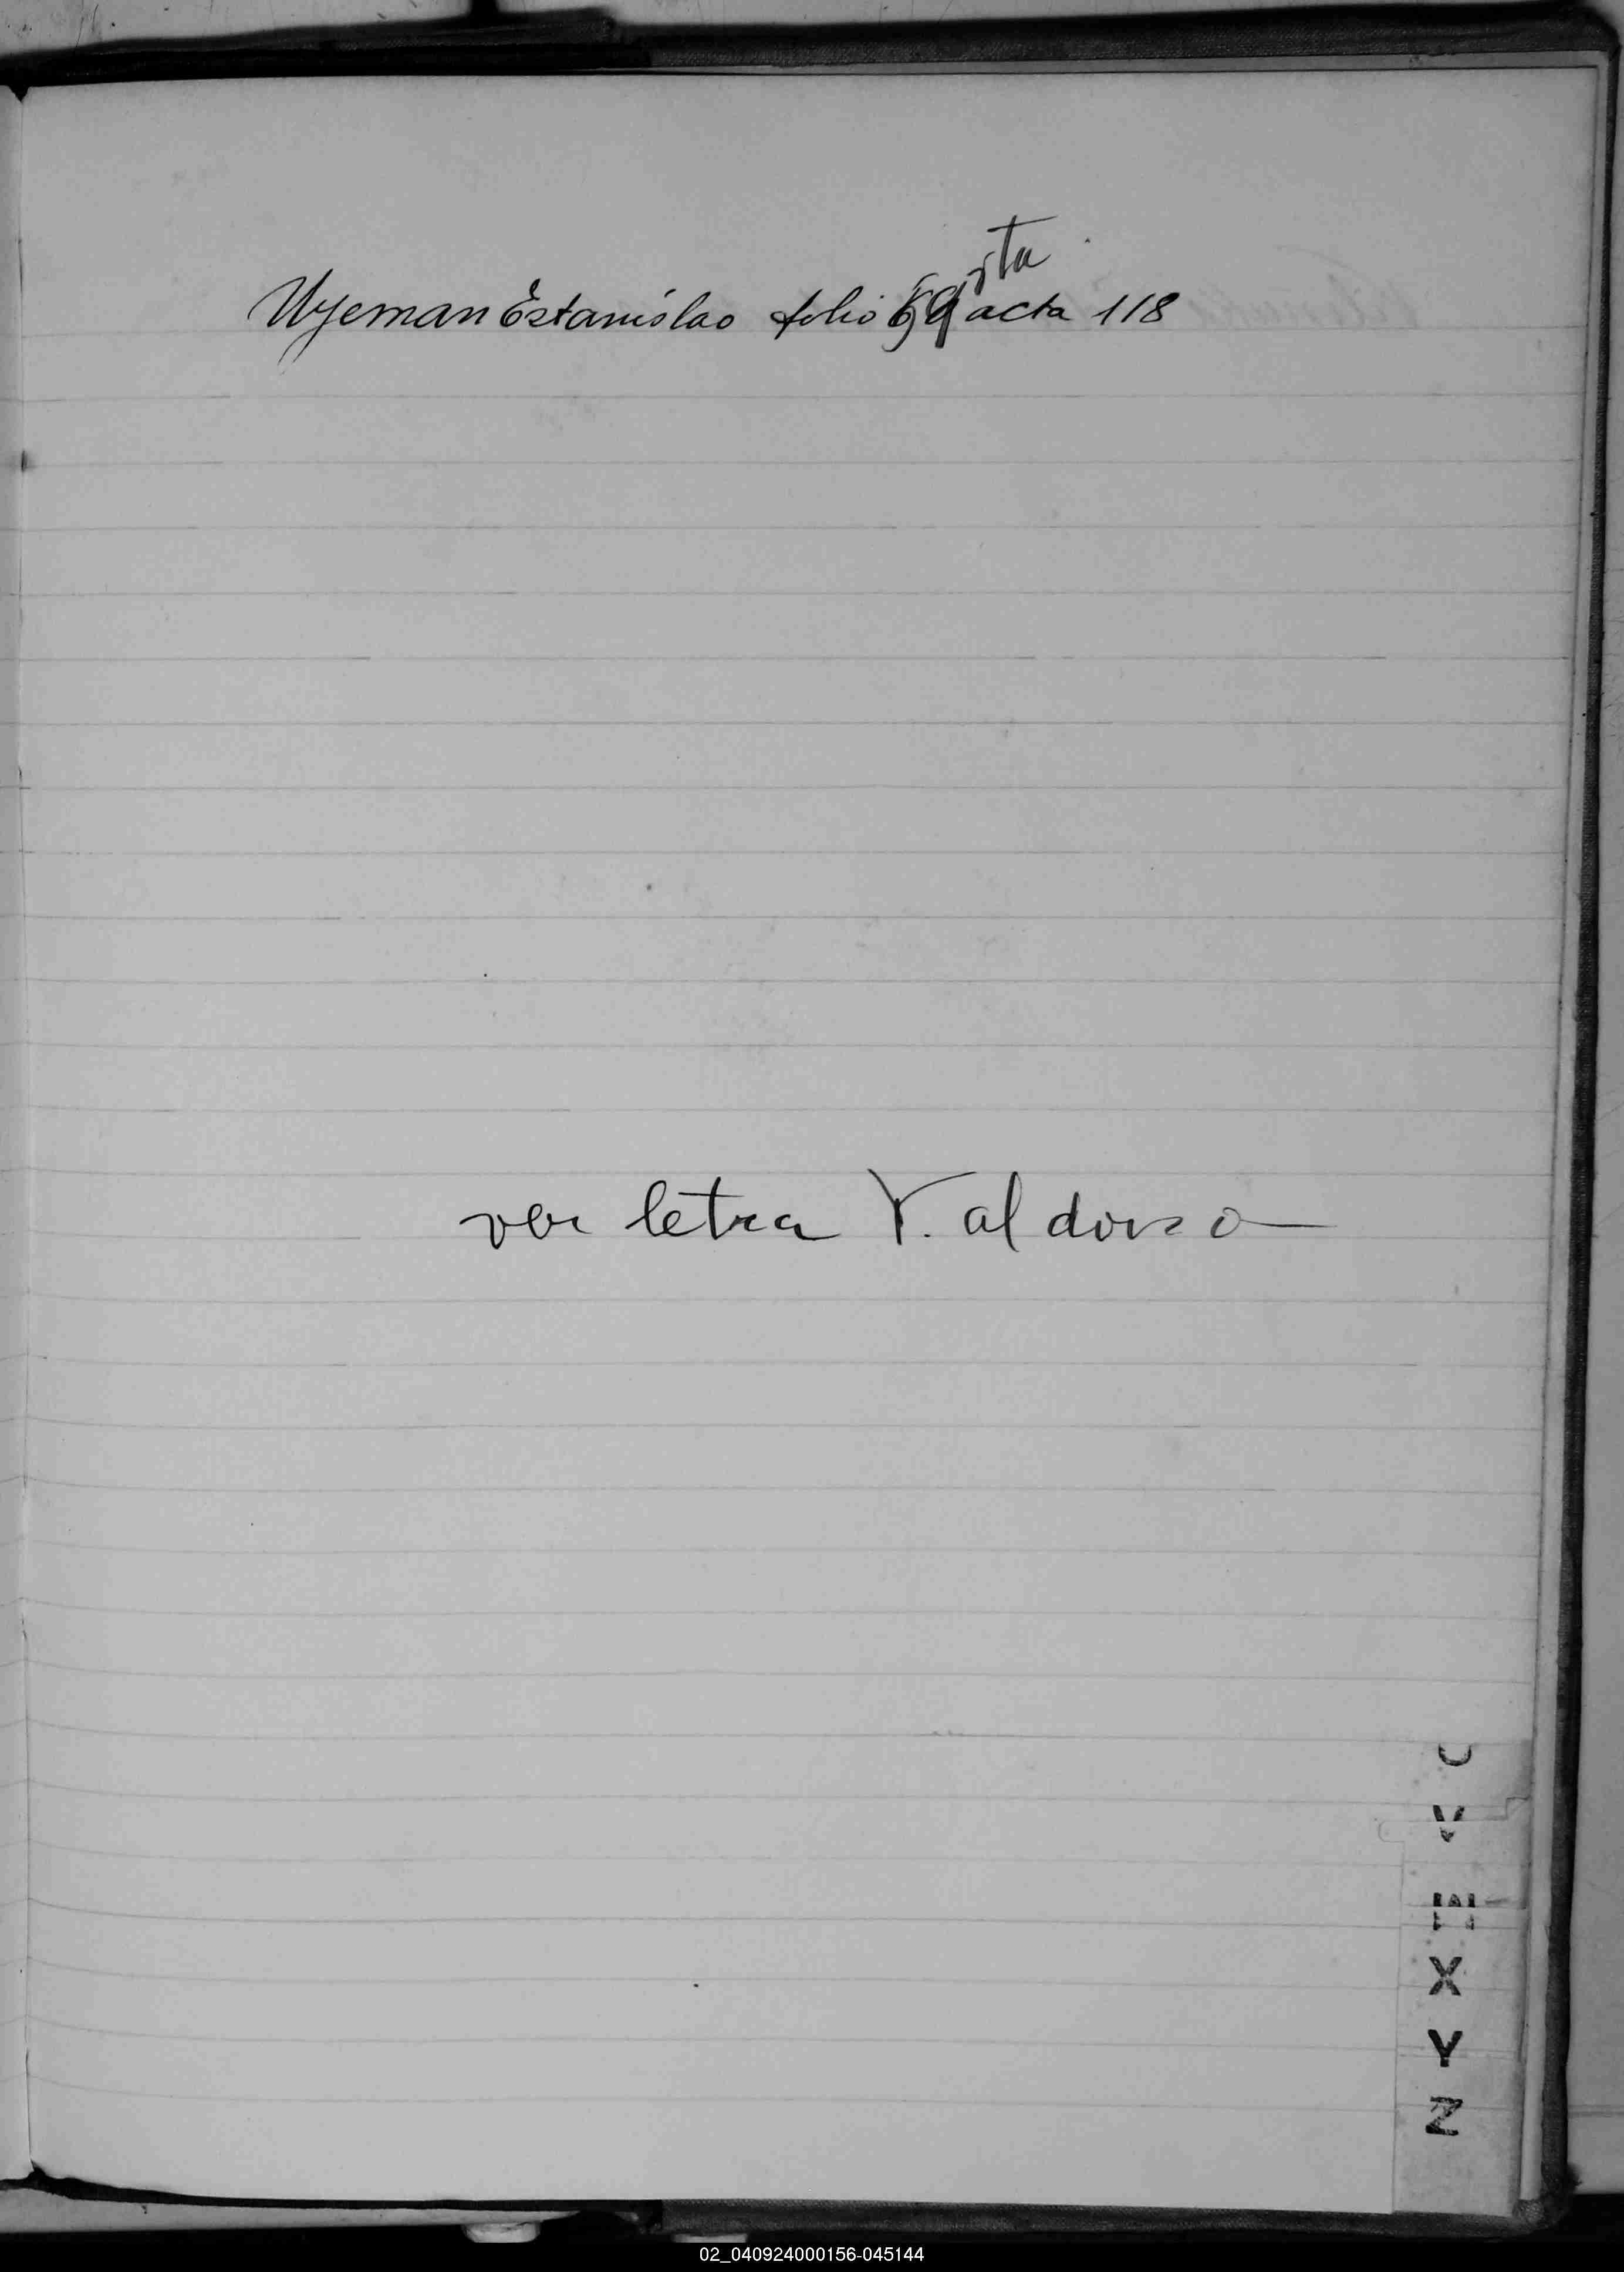 vta
Uyeman Estanislao folio 59 acta 118
ver letra Y. al dorso
U
V
W
X
Y
Z
02_040924000156-045144